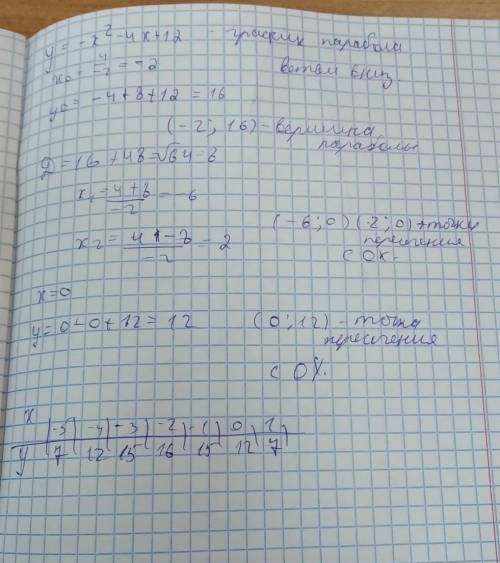 y = -x² - 4x + 12 - график парабола
x₀ = 4/-2 = -2 ветви вниз.
y₀ = -4 + 8 + 12 = 16
(-2; 16) - вершина
параболы
D = 16 + 48 = √64 = 8
x₁ = 4 + 8/-2 = -6
(-6; 0) (2; 0) точки
x₂ = 4 - 8/-2 = 2 пересечения
с OX.
x = 0
y = 0 - 0 + 12 = 12 (0; 12) - точка
пересечения
с OX.
x | -5 | -4 | -3 | -2 | -1 | 0 | 1
y | 7 | 12 | 15 | 16 | 15 | 12 | 7